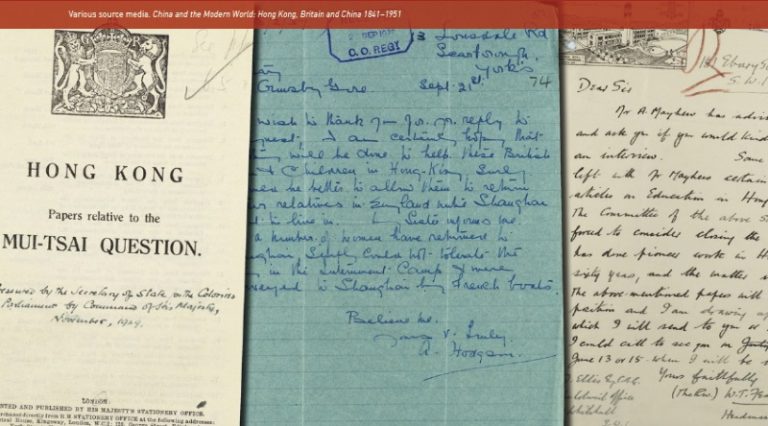 Various source media, China and the Modern World: Hong Kong, Britain and China 1841–1951
HONG KONG
Papers relative to the
MUI-TSAI QUESTION.
Presented by the Secretary of State for the Colonies
to Parliament by Command of His Majesty,
November, 1929.
LONDON:
PRINTED AND PUBLISHED BY HIS MAJESTY'S STATIONERY OFFICE.
directly from H.M. STATIONERY OFFICE at the following addresses:
House, Kingsway, London, W.C.2;
C.O. REGY
Lonsdale Rd
Scarborough,
York's
74
Ormsby Gore
Sept. 21st.
wish to thank you for yr reply to
I am certainly hoping that
will be done to help these British
& Children in Hong-Kong Surely
be better to allow them to return
relatives in England until Shanghai
to live in. My Sister informs me
a number of women have returned to
Simply could not tolerate the
in the Internment Camp & were
conveyed to Shanghai by French boats.
Believe me.
Yours v. truly
A. Hodgson.
Ebury St
S.W.1
Dear Sir
Mr A. Mayhew has advis
and ask you if you would kind
an interview. Some
left with Mr Mayhew certain
articles on Education in Hong
The Committee of the above s
forced to consider closing the
has done pioneer work in H
sixty years, and the matter is
The above-mentioned papers will
position and I am drawing up
which I will send to you a
I could call to see you on
June 13 or 15 when I will be
Yours faithfully
(The Rev) W.T. Fea
Ellis Esq CMG.
Colonial Office
Whitehall
Headmas